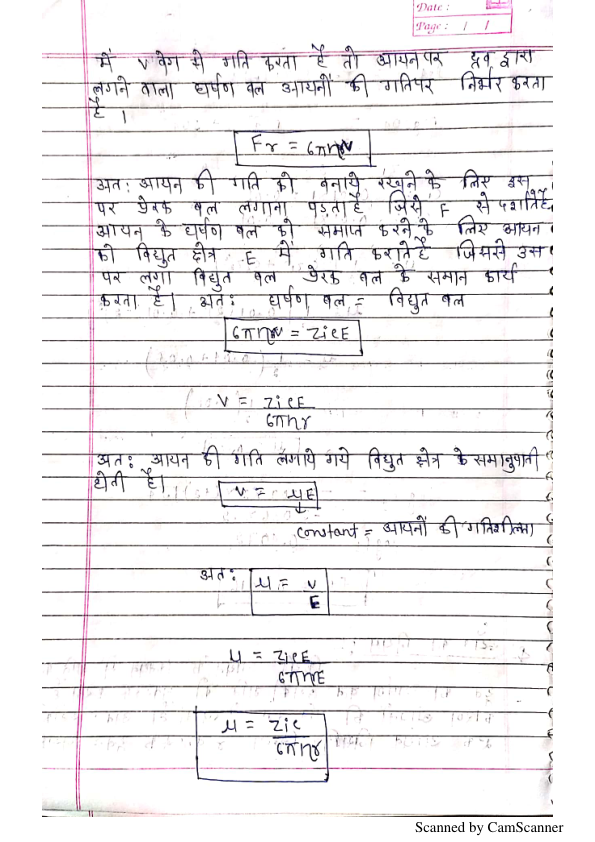 Date :
Page : / /
में v वेग से गति करता है तो आयन पर द्रव द्वारा
लगने वाला घर्षण बल आयनों की गति पर निर्भर करता
है ।
Fr = 6πηrv
अतः आयन की गति को बनाये रखने के लिए इस
पर प्रेरक बल लगाना पड़ता है जिसे F से दर्शाते है
आयन के घर्षण बल को समाप्त करने के लिए आयन
को विद्युत क्षेत्र E में गति कराते है जिससे उस
पर लगा विद्युत बल प्रेरक बल के समान कार्य
करता है। अतः घर्षण बल = विद्युत बल
6πηrv = ZieE
v = ZieE
6πηr
अतः आयन की गति लगाये गये विद्युत क्षेत्र के समानुपाती
होती है।
v = μE
constant = आयनों की गतिशीलता
अतः μ = v
E
μ = ZieE
6πηrE
μ = Zie
6πηr
Scanned by CamScanner